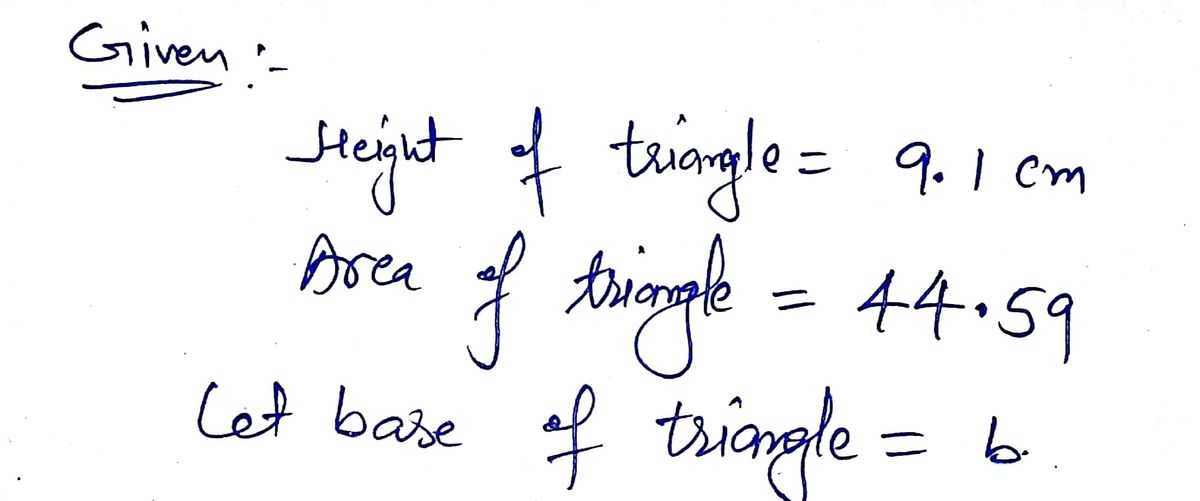 Given :-
Height of triangle = 9.1 cm
Area of triangle = 44.59
Let base of triangle = b.